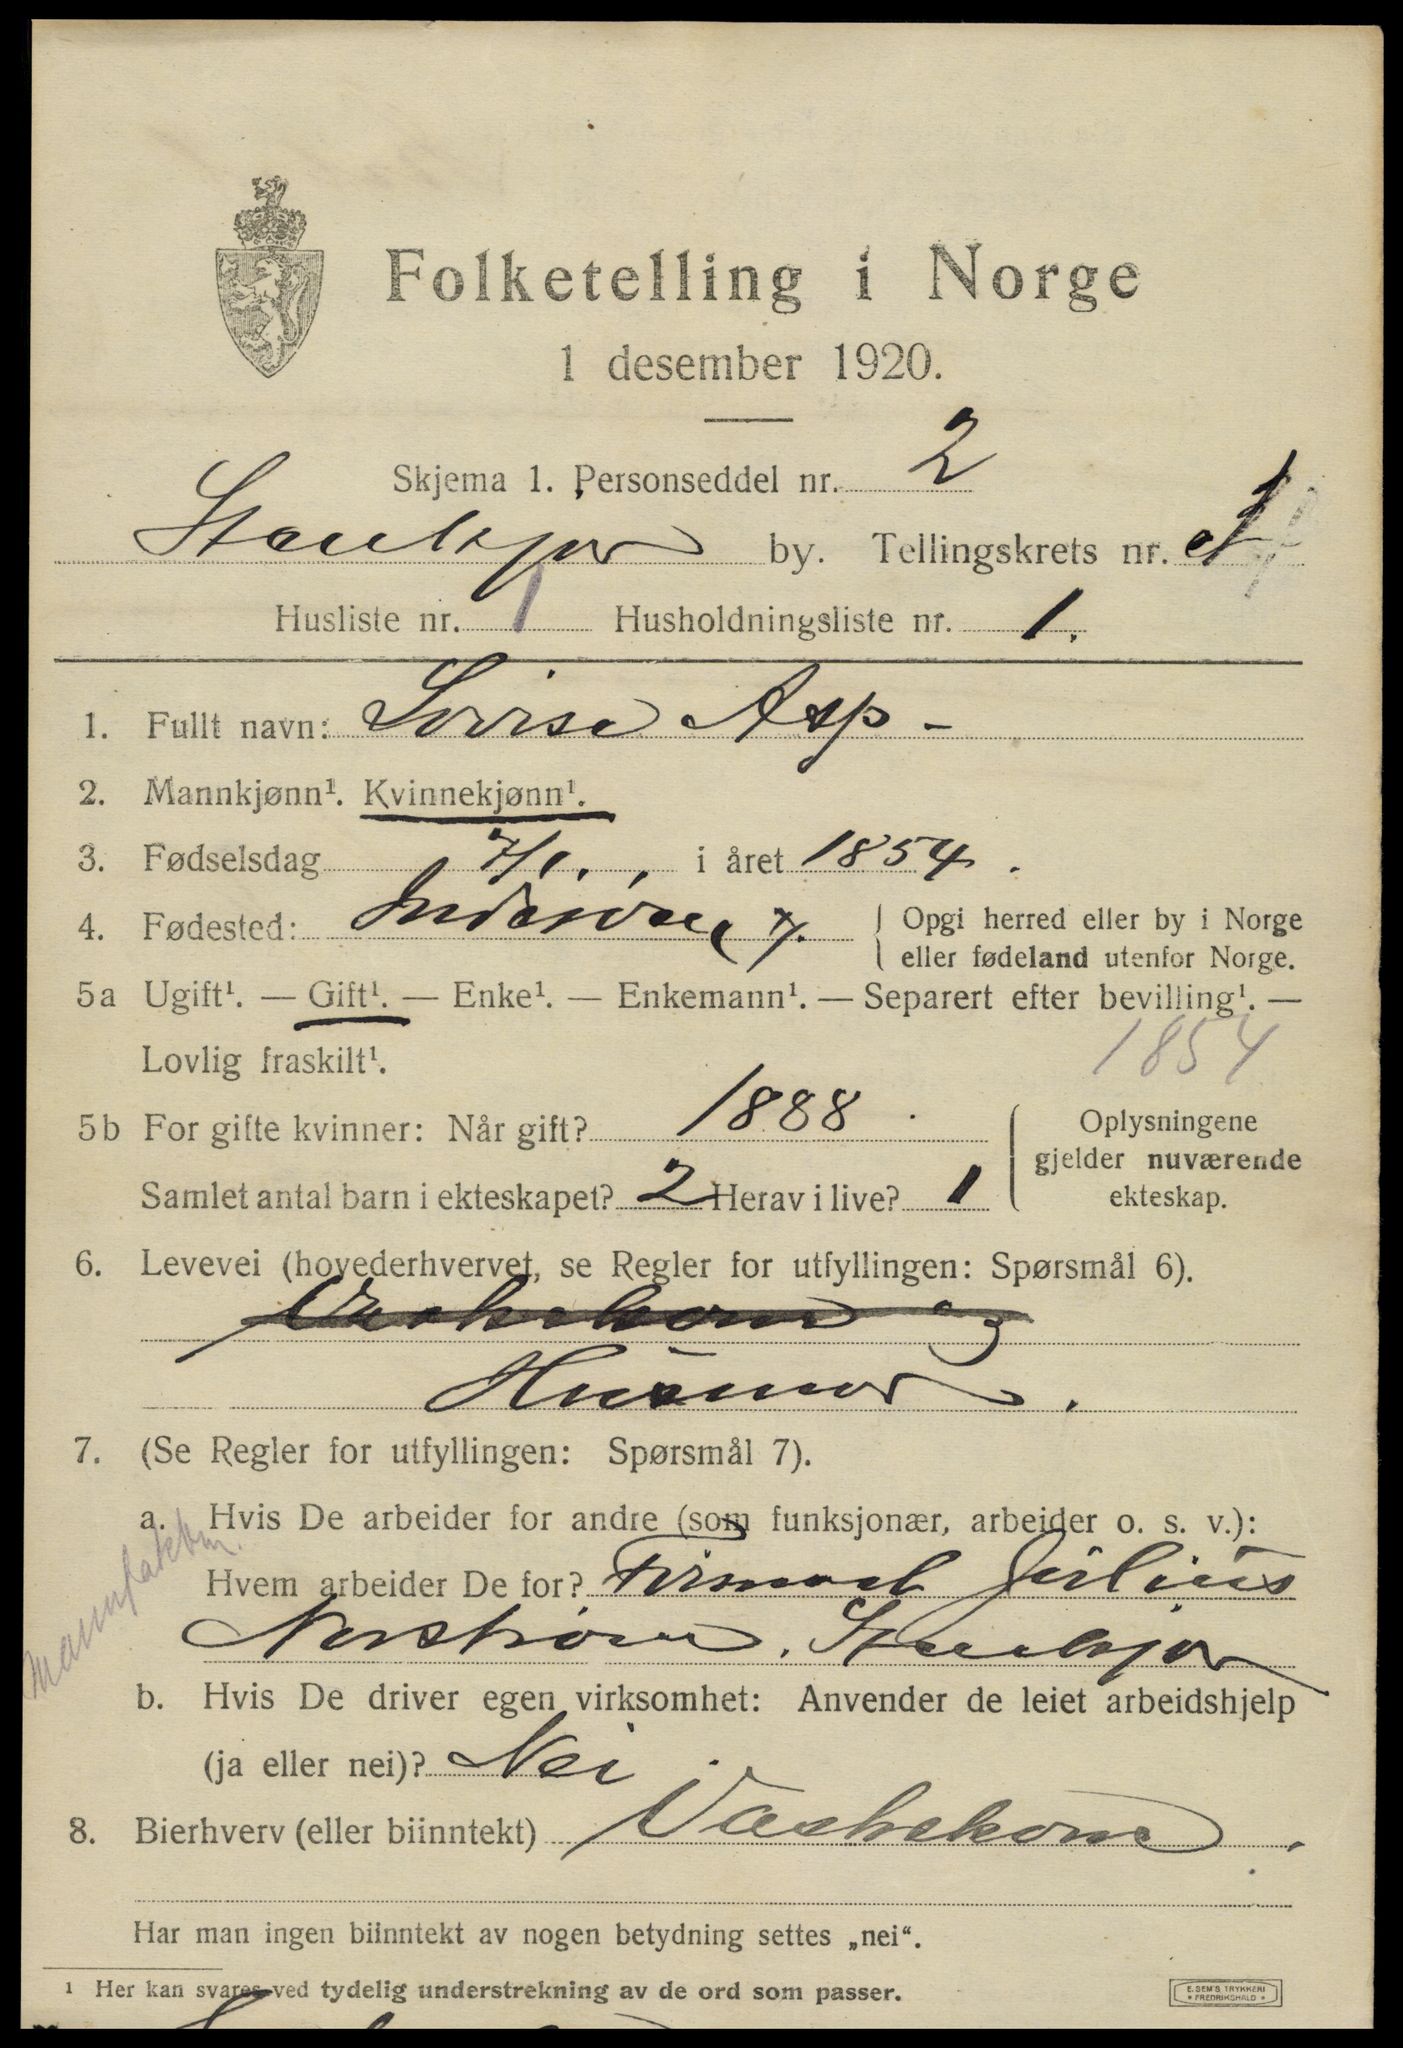 Folketelling i Norge
1 desember 1920.
Skjema 1. Personseddel nr. 2
Stenkjær by. Tellingskrets nr.
Husliste nr. 1 Husholdningsliste nr. 1.
1. Fullt navn: Lovise Asp -
2. Mannkjønn¹. Kvinnekjønn¹.
3. Fødselsdag 7/1. , i året 1854.
4. Fødested: Inderøen { Opgi herred eller by i Norge
eller fødeland utenfor Norge.
5a Ugift¹. — Gift¹. — Enke¹. — Enkemann¹. — Separert efter bevilling¹. —
Lovlig fraskilt¹. 1854
5b For gifte kvinner: Når gift? 1888. { Oplysningene
gjelder nuværende
Samlet antal barn i ekteskapet? 2 Herav i live? 1 ekteskap.
6. Levevei (hovederhvervet, se Regler for utfyllingen: Spørsmål 6).
Vaskekone og
Husmor.
7. (Se Regler for utfyllingen: Spørsmål 7).
a. Hvis De arbeider for andre (som funksjonær, arbeider o. s. v.):
Hvem arbeider De for? Firmaet Julius
Norstrøm. Stenkjær
b. Hvis De driver egen virksomhet: Anvender de leiet arbeidshjelp
(ja eller nei)? Nei.
8. Bierhverv (eller biinntekt) Vaskekone.
Har man ingen biinntekt av nogen betydning settes „nei“.
¹ Her kan svares ved tydelig understrekning av de ord som passer.
E. SEM'S TRYKKERI
* FREDRIKSHALD *